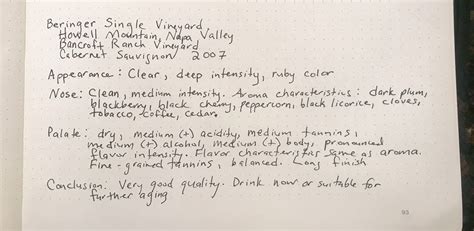 Beringer Single Vineyard
Howell Mountain, Napa Valley
Bancroft Ranch Vineyard
Cabernet Sauvignon 2007
Appearance: Clear, deep intensity, ruby color
Nose: Clean, medium intensity. Aroma characteristics: dark plum,
blackberry, black cherry, peppercorn, black licorice, cloves,
tobacco, coffee, cedar.
Palate: dry, medium (+) acidity, medium tannins,
medium (+) alcohol, medium (+) body, pronounced
flavor intensity. Flavor characteristics same as aroma.
Fine-grained tannins, balanced. Long finish
Conclusion: Very good quality. Drink now or suitable for
further aging
93